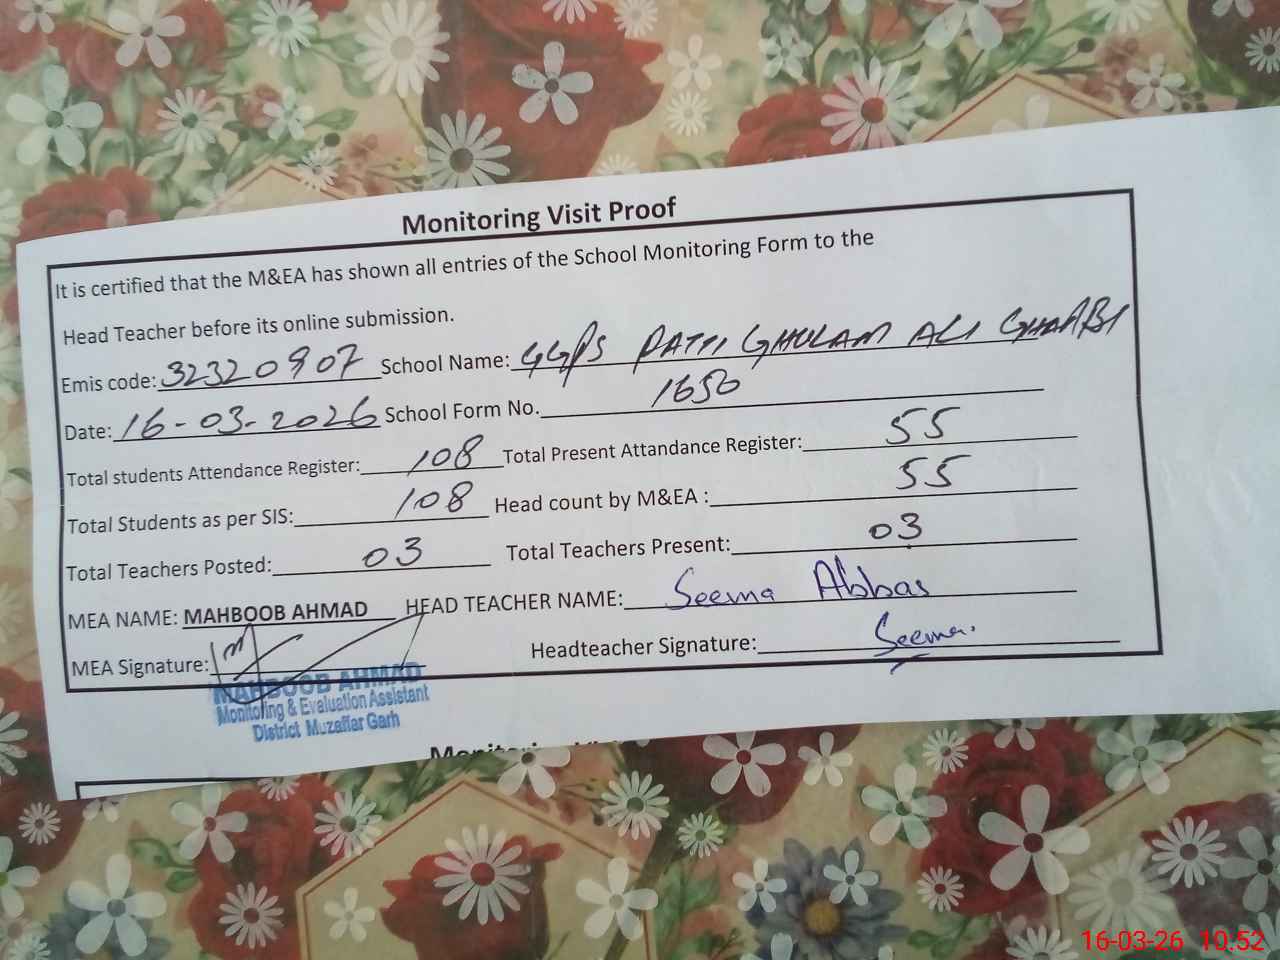 Monitoring Visit Proof
It is certified that the M&EA has shown all entries of the School Monitoring Form to the
Head Teacher before its online submission.
Emis code: 32320907 School Name: GGPS PATTI GHULAM ALI GHARBI
Date: 16-03-2026 School Form No. 1650
Total students Attendance Register: 108 Total Present Attandance Register: 55
Total Students as per SIS: 108 Head count by M&EA : 55
Total Teachers Posted: 03 Total Teachers Present: 03
MEA NAME: MAHBOOB AHMAD HEAD TEACHER NAME: Seema Abbas
MEA Signature: Headteacher Signature: Seema.
MAHBOOB AHMAD
Monitoring & Evaluation Assistant
District Muzaffar Garh
16-03-26 10:52